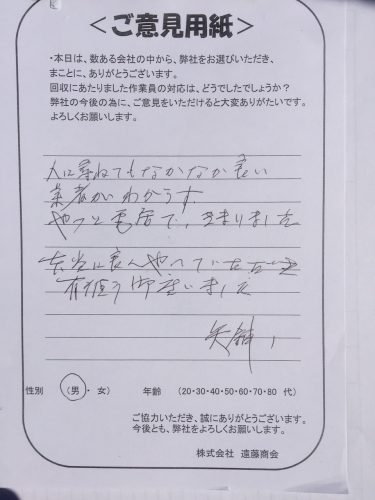 ＜ご意見用紙＞
・本日は、数ある会社の中から、弊社をお選びいただき、
まことに、ありがとうございます。
回収にあたりました作業員の対応は、どうでしたでしょうか？
弊社の今後の為に、ご意見をいただけると大変ありがたいです。
よろしくお願いします。
人に尋ねてもなかなか良い
業者がわからず
やっと電話で、きまりました
本当に良くやっていただき
有難う御座いました
矢
性別 （男・ 女） 年齢 （20・30・40・50・60・70・80 代）
ご協力いただき、誠にありがとうございます。
今後とも、弊社をよろしくお願いします。
株式会社 遠藤商会